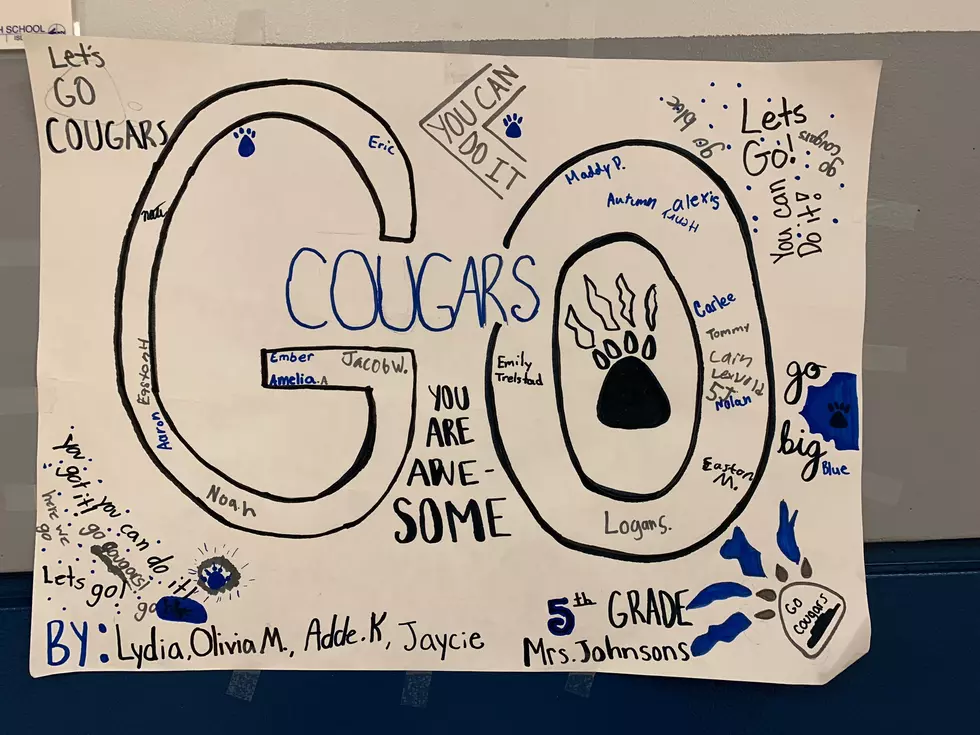 H SCHOOL
Let's
GO
COUGARS
GO
COUGARS
YOU CAN
DO IT
Lets
Go!
go blue
go
cougars
You can
Do it!
Eric
Nate
Easton H
Aaron
Noah
Ember
Amelia.A
Jacob W.
Maddy P.
Autumn
alexis
Henry
Carlee
Tommy
Cain
Nolan
Easton
M.
Logan S.
Emily
Trelstad
YOU
ARE
AWE-
SOME
go
big
Blue
You got it!
you can do it!
here we
go
go cougars!
Lets go!
go
5th GRADE
Mrs. Johnsons
GO
Cougars
BY: Lydia, Olivia M., Adde.K, Jaycie